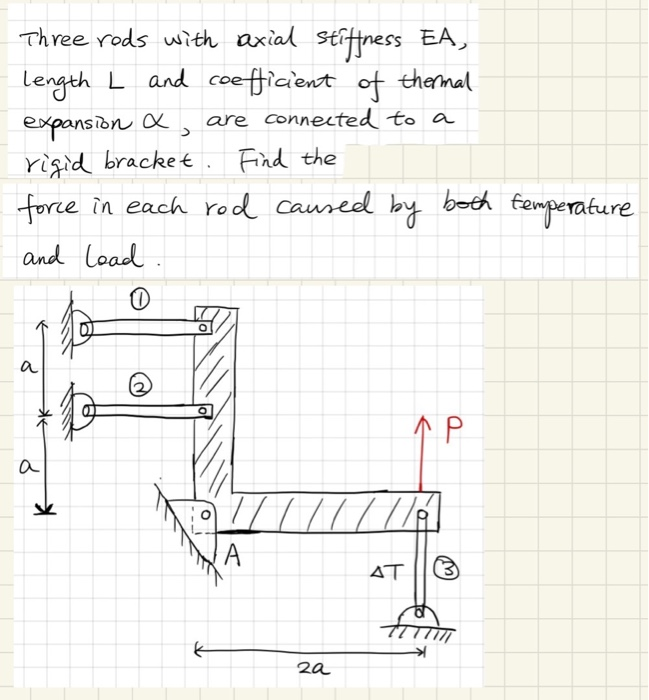 Three rods with axial stiffness EA,
length L and coefficient of thermal
expansion α, are connected to a
rigid bracket. Find the
force in each rod caused by both temperature
and load.
①
a
②
P
a
A
ΔT ③
2a